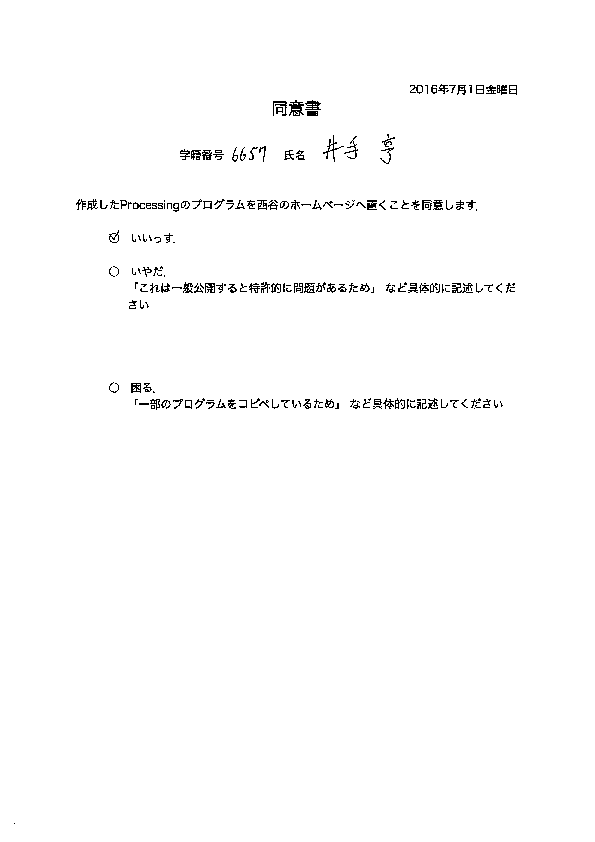 2016年7月1日金曜日
同意書
学籍番号 6657 氏名 井手 亨
作成したProcessingのプログラムを西谷のホームページへ置くことを同意します.
いいっす.
いやだ.
「これは一般公開すると特許的に問題があるため」 など具体的に記述してくだ
さい
困る.
「一部のプログラムをコピペしているため」 など具体的に記述してください